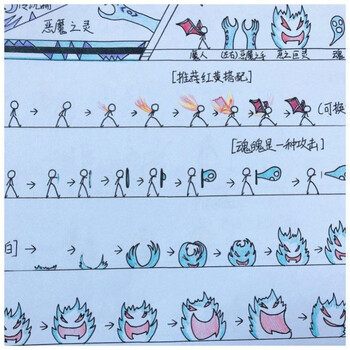 恶魔之灵
魔人
恶魔之手
魂
[推荐红黄搭配]
(可换
[魂魄是一种攻击]
白]